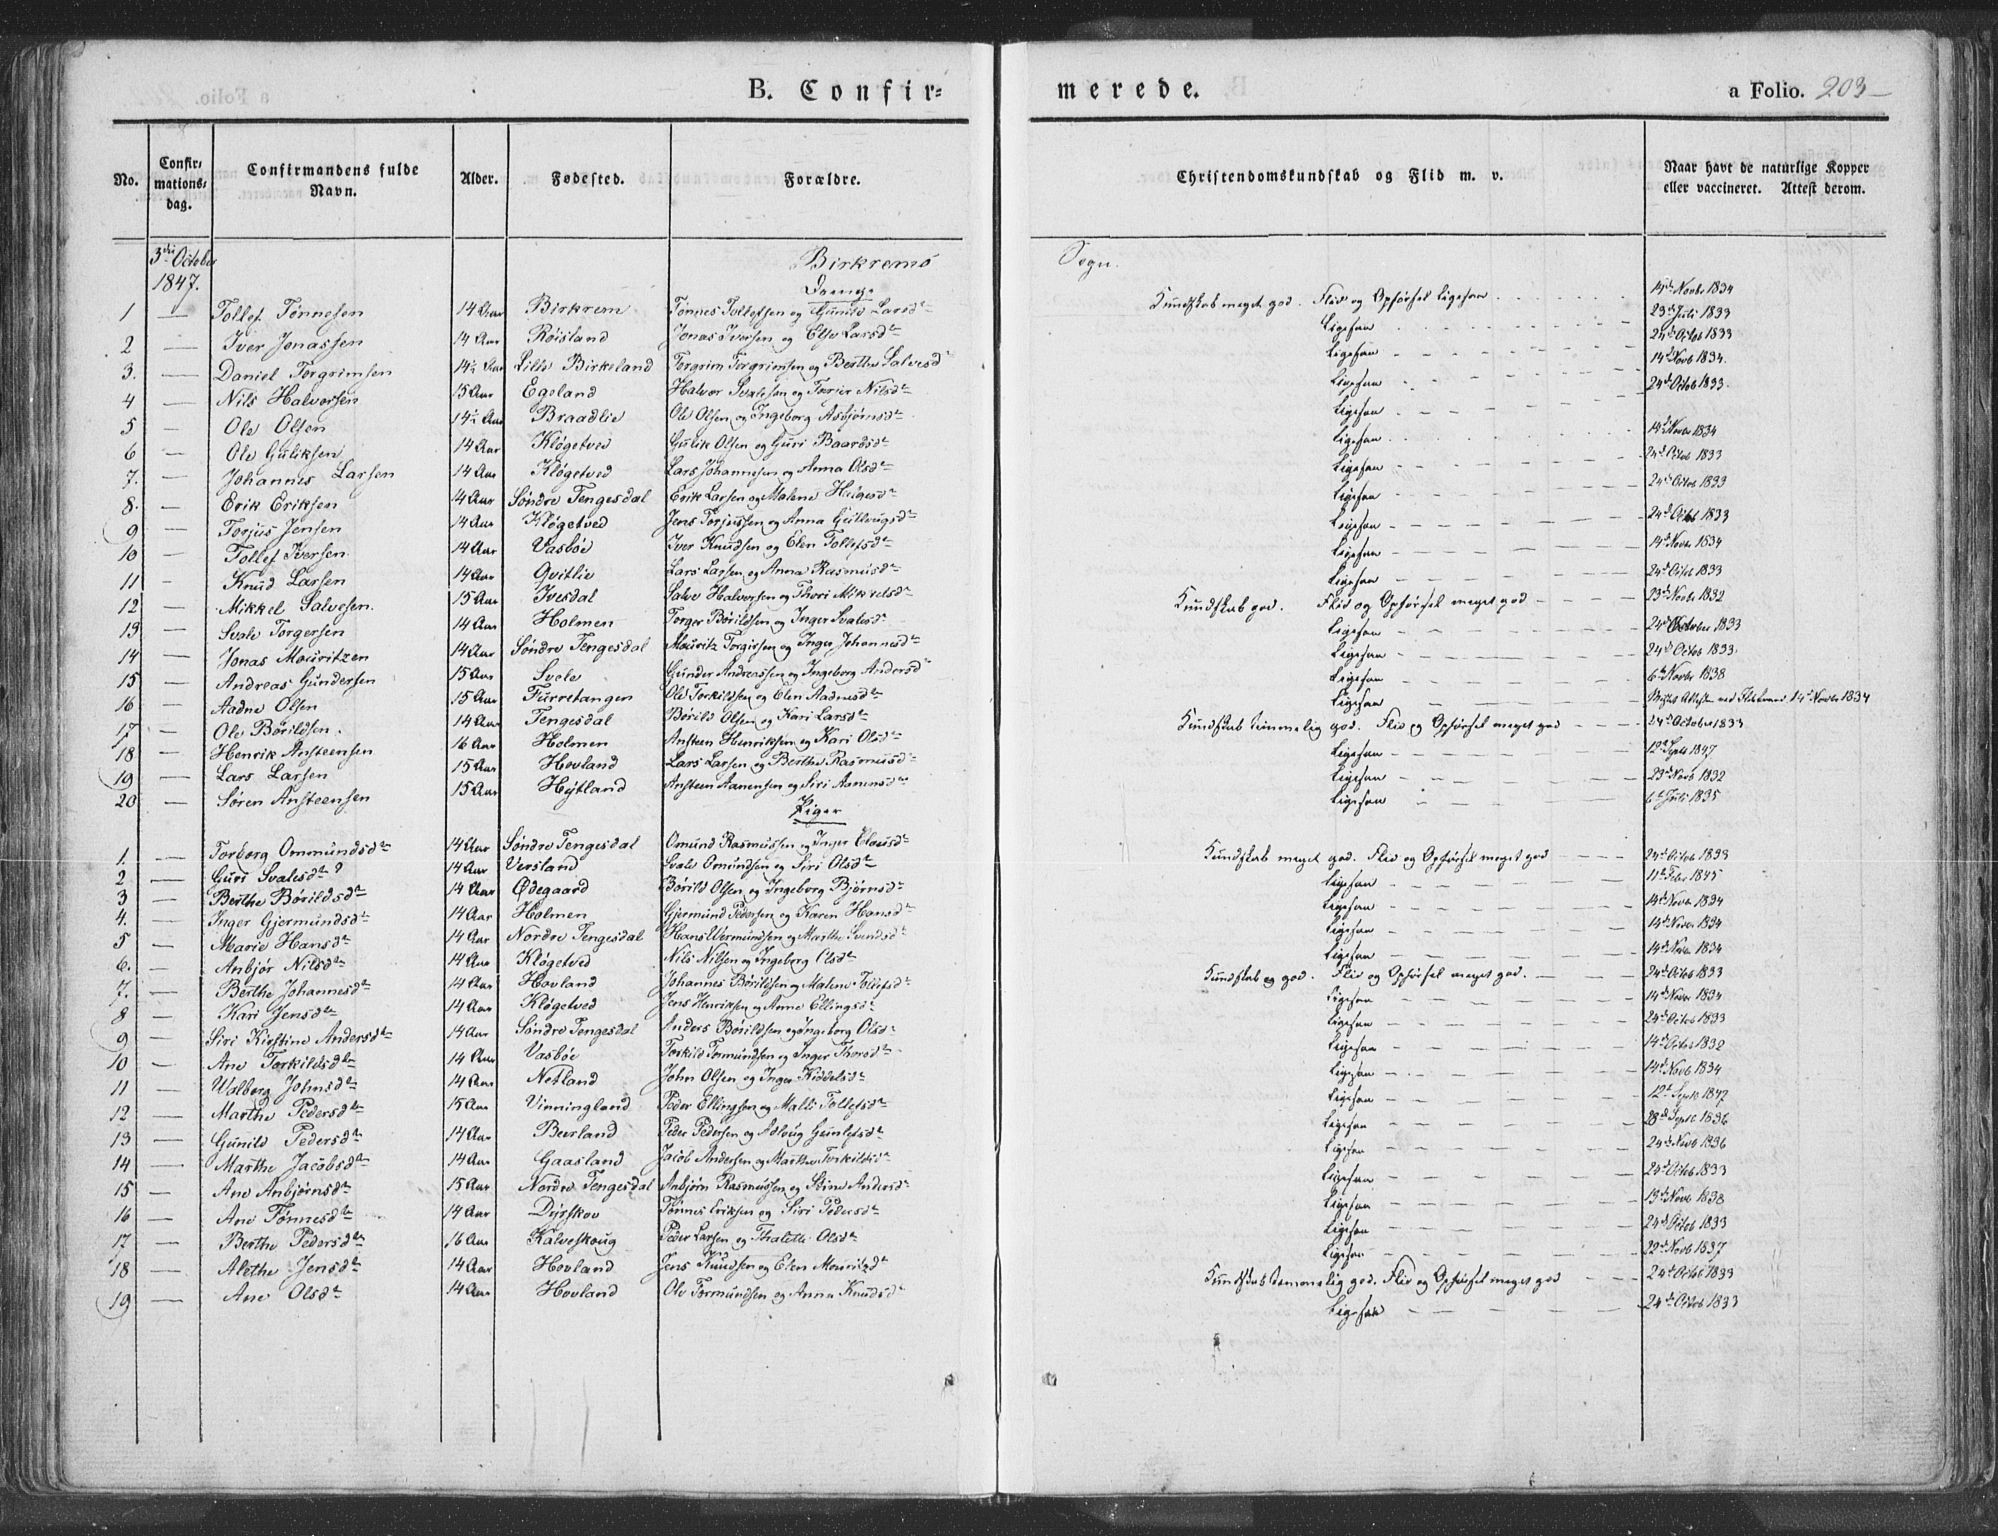 B. Confir-
merede.
a Folio. 203
No.
Confir-
mations-
dag.
Confirmandens fulde
Navn.
Alder.
Fødested.
Forældre.
Christendomskundskab og Flid m. v.
Naar havt de naturlige Kopper
eller vaccineret. Attest derom.
3die October
1847.
Birkrems
Sogn.
Drenge
1 — Tollef Tønnesen 14 Aar Birkrem Tønnes Tollefsen og Gunild Larsdr Kundskab meget god. Flid og Opførsel ligesaa 14de Novbr 1834
2 — Iver Jonassen 14 Aar Røisland Jonas Iversen og Else Larsdr Ligesaa 23de Juli 1833
3. — Daniel Torgrimsen 14½ Aar Lille Birkeland Torgrim Torgrimsen og Berthe Salvesdr Ligesaa 24de Octob 1833
4 — Nils Halvorsen 15 Aar Egeland Halvor Svalesen og Torjer Nilsdr Ligesaa 14de Novb 1834.
5 — Ole Olsen 14½ Aar Braadlie Ole Olsen og Ingeborg Asbjørnsdr Ligesaa 24de Octob 1833.
6 — Ole Guliksen 14 Aar Kløgetved Gulik Olsen og Guri Baardsdr Ligesaa 14de Novbr 1834
7. — Johannes Larsen 14 Aar Kløgetved Lars Johannesen og Anna Olsdr Ligesaa 24de Octob 1833
8. — Erik Eriksen 14 Aar Søndre Tengesdal Erik Larsen og Malene Heigesdr Ligesaa 24de Octob 1833
9 — Torjus Jensen 14 Aar Kløgetved Jens Torjussen og Anna Ligesaa 24de Octob 1833
10 — Tollef Iversen 14 Aar Vasbøe Iver Knudsen og Elen Tollefsdr Ligesaa 14de Novbr 1834
11 — Knud Larsen 14 Aar Qvitlie Lars Larsen og Anna Rasmusdr Ligesaa 24de Octob 1833
12 — Mikkel Salvesen. 15 Aar Ivesdal Salve Halvorsen og Thori Mikkelsdr Kundskab god. Flid og Opførsel meget god 23de Novbr 1832
13 — Svale Torgersen 14 Aar Holmen Torger Børildsen og Inger Svalesdr Ligesaa 24de October 1833
14 — Jonas Mouritzen 14 Aar Søndre Tengesdal Mouritz Torgersen og Inger Johannesdr Ligesaa 24de Octob 1833.
15 — Andreas Gundersen 15 Aar Svele Gunder Andreassen og Ingeborg Andersdr Ligesaa 6te Novbr 1838
16 — Aadne Olsen 15 Aar Furretangen Ole Torkildsen og Elen Aadnesdr Ligesaa 14de Novbr 1834
17 — Ole Børildsen. 14 Aar Tengesdal Børild Olsen og Kari Larsdr Kundskab temmelig god. Flid og Opførsel meget god 24de October 1833.
18 — Henrik Ansteensen 16 Aar Holmen Ansteen Henriksen og Kari Olsdr Ligesaa 12te Septb 1847
19 — Lars Larsen 15 Aar Hovland Lars Larsen og Berthe Rasmusdr Ligesaa 23de Novb 1832
20 — Søren Ansteensen 15 Aar Højtland Ansteen Aanensen og Siri Aanensdr Ligesaa 6te Juli 1835
Piger
1. — Torborg Ommundsdr 14 Aar Søndre Tengesdal Omund Rasmussen og Inger Clausdr Kundskab meget god. Flid og Opførsel meget god 24de Octob 1833
2 — Guri Svalesdr 14 Aar Versland Svale Omundsen og Siri Olsdr Ligesaa 11te Febr 1845
3 — Berthe Børildsdr 14 Aar Ødegaard Børild Olsen og Ingeborg Bjørnsdr Ligesaa 14de Novbr 1834
4. — Inger Gjermundsdr 14 Aar Holmen Gjermund Pedersen og Karen Hansdr Ligesaa 14de Novbr 1834
5 — Marie Hansdr 14 Aar Nordre Tengesdal Hans Vermundsen og Marthe Svendsdr Ligesaa 14de Novbr 1834
6. — Anbjør Nilsdr 14 Aar Kløgetved Nils Nilsen og Ingeborg Olsdr Ligesaa 24de Octob 1833
7. — Berthe Johannesdr 14 Aar Hovland Johannes Børildsen og Malene Tollefsdr Kundskab og god. Flid og Opførsel meget god. 14de Novbr 1834
8 — Kari Jensdr 14 Aar Kløgetved Jens Henriksen og Anne Ellingsdr Ligesaa 24de Octob 1833
9 — Siri Kirstine Andersdr 14 Aar Søndre Tengesdal Anders Børildsen og Ingeborg Olsdr Ligesaa 14de Octob 1832
10 — Ane Torkildsdr 14 Aar Vasbøe Torkild Tormundsen og Inger Thorsdr Ligesaa 14de Novb 1834
11 — Walborg Johnsdr 14 Aar Netland John Olsen og Inger Kiddelsdr Ligesaa 12te Septb 1847
12 — Marthe Pedersdr 15 Aar Vinningland Peder Ellingsen og Malli Tollefsdr Ligesaa 28de Septb 1836
13 — Gunild Pedersdr 14 Aar Beerland Peder Pedersen og Gunlefsdr Ligesaa 24de Novb 1836
14 — Marthe Jacobsdr 14 Aar Gaasland Jacob Andersen og Marthe Torkildsdr Ligesaa 24de Octob 1833
15 — Ane Anbjørnsdr 15 Aar Nordre Tengesdal Anbjørn Rasmussen og Stine Andersdr Ligesaa 13de Novb 1838
16 — Ane Tønnesdr 14 Aar Dyrskov Tønnes Eriksen og Siri Pedersdr Ligesaa 24de Octob 1833
17 — Berthe Pedersdr 16 Aar Kalveskoug Peder Larsen og Thalette Olsdr Ligesaa 22de Novb 1837
18 — Alethe Jensdr 14 Aar Hovland Jens Knudsen og Elen Mouritzdr Kundskab temmelig god. Flid og Opførsel meget god 24de Octob 1833
19 — Ane Olsdr 14 Aar Hovland Ole Tormundsen og Anna Knudsdr Ligesaa 24de Octob 1833